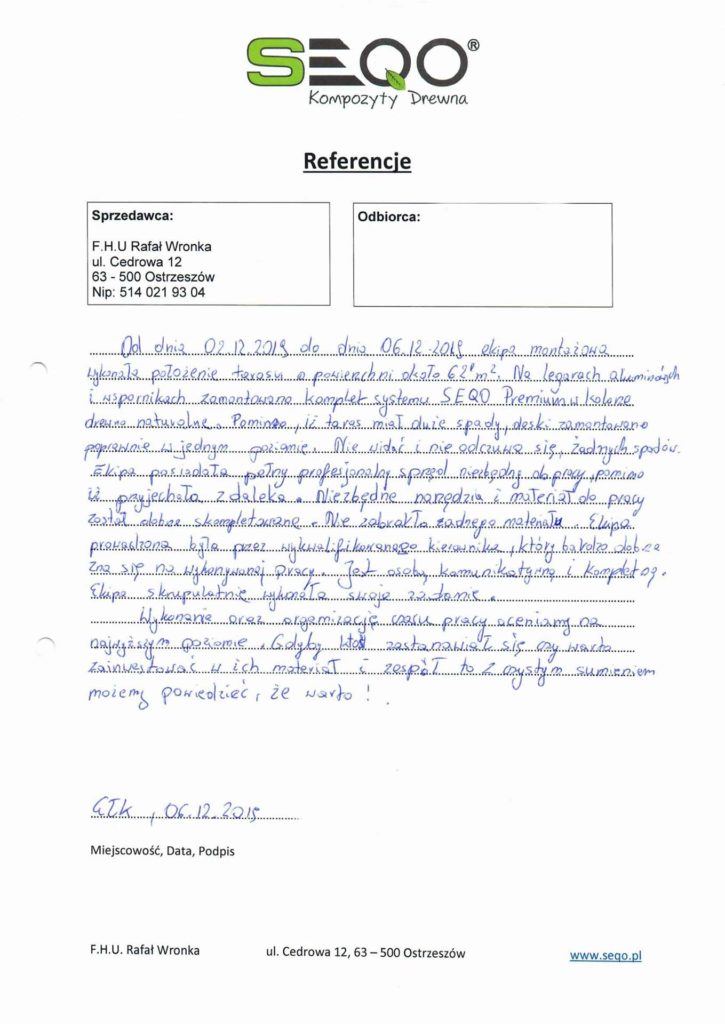 SEQO®
Kompozyty Drewna
Referencje
Sprzedawca:
F.H.U Rafał Wronka
ul. Cedrowa 12
63 - 500 Ostrzeszów
Nip: 514 021 93 04
Odbiorca:
Od dnia 02.12.2019 do dnia 06.12.2019 ekipa montażowa
wykonała położenie tarasu o powierzchni około 62 m². Na legarach aluminiowych
i wspornikach zamontowano komplet systemu SEQO Premium w kolorze
drewno naturalne. Pomimo, iż taras miał duże spady, deski zamontowano
poprawnie w jednym poziomie. Nie widać i nie odczuwa się, żadnych spadów.
Ekipa posiadała pełny profesjonalny sprzęt niezbędny do pracy, pomimo
iż przyjechała z daleka. Niezbędne narzędzia i materiał do pracy
został dobrze skompletowane. Nie zabrakło żadnego materiału. Ekipa
prowadzona była przez wykwalifikowanego kierownika, który bardzo dobrze
zna się na wykonywanej pracy. Jest osobą komunikatywną i
Ekipa skrupulatnie wykonała swoje zadanie.
Wykonanie oraz organizację czasu pracy oceniamy na
najwyższym poziomie. Gdyby ktoś zastanawiał się czy warto
zainwestować w ich materiał i zespół to z czystym sumieniem
możemy powiedzieć, że warto!
06.12.2019
Miejscowość, Data, Podpis
F.H.U. Rafał Wronka
ul. Cedrowa 12, 63 – 500 Ostrzeszów
www.seqo.pl